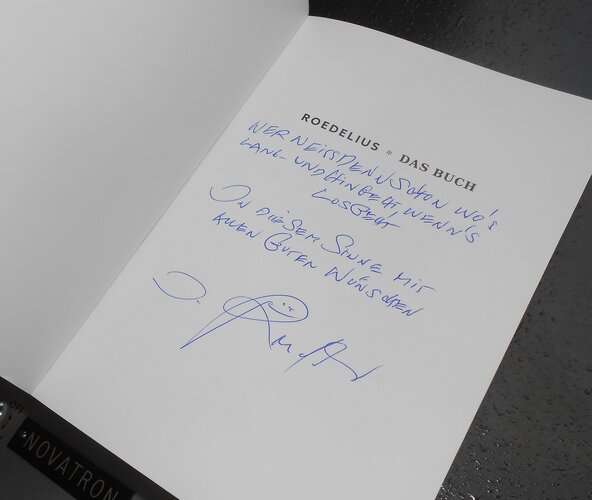 ROEDELIUS * DAS BUCH
WER WEISS DENN SCHON WO'S
LANG- UND HINGEHT WENN'S
LOSGEHT
IN DIESEM SINNE MIT
ALLEN GUTEN WÜNSCHEN
NOVATRON
OFF